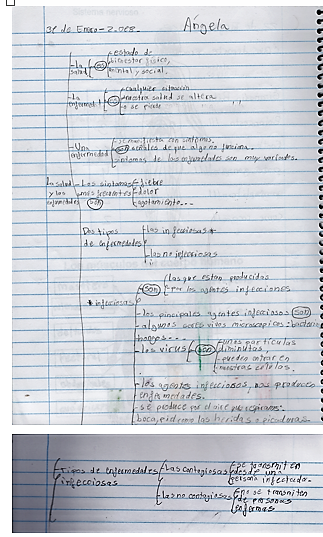 31 de Enero-2.008. Ángela
-La salud es -estado de bienestar físico, mental y social.
-La enfermed. es -cualquier situación nuestra salud se altera o se pierde
-Una enfermedad -se manifiesta con síntomas.
son señales de que algo no funciona.
síntomas de las enfermedades son muy variados.
La salud y las enfermedades -Los síntomas más frecuentes son -fiebre
-dolor
-agotamiento...
Dos tipos de enfermedades -las infecciosas *
-las no infecciosas
* infecciosas
son las que están producidas
por los agentes infecciosos
-los principales agentes infecciosos son
-algunos seres vivos microscópicos: bacterias
hongos...
-los virus son -unas partículas
diminutas
-pueden entrar en
nuestras células.
-los agentes infecciosos, nos producen
enfermedades.
-se produce por el aire que respiramos.
boca, piel, las heridas o picaduras
Tipos de enfermedades infecciosas -Las contagiosas -se transmiten
desde una
persona infectada.
-La no contagiosas -no se transmiten
de personas
enfermas.